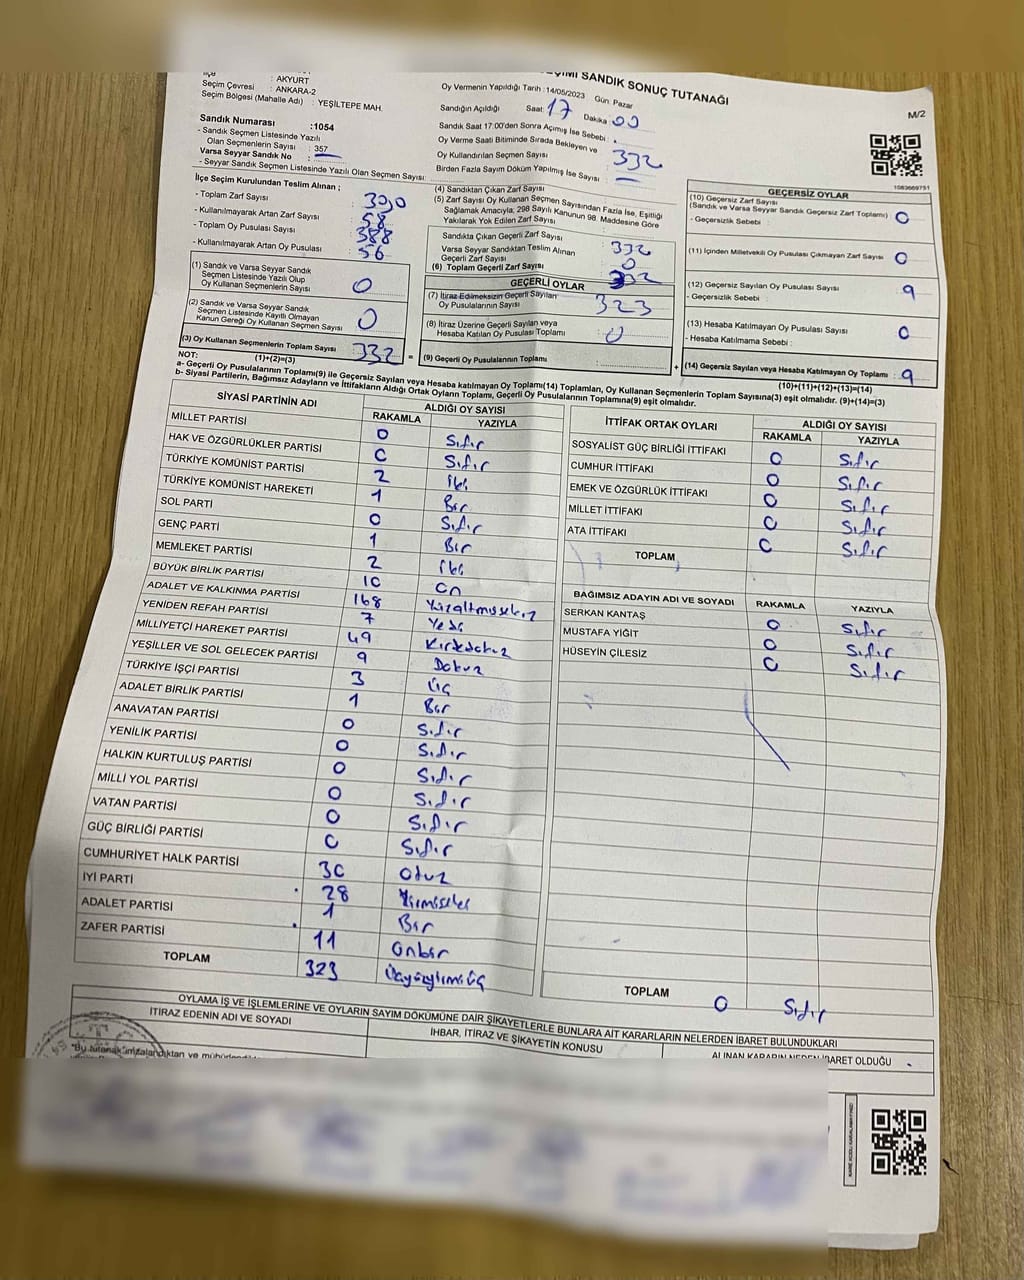 SANDIK SONUÇ TUTANAĞI
: AKYURT
Seçim Çevresi : ANKARA-2
Seçim Bölgesi (Mahalle Adı) : YEŞİLTEPE MAH.
Oy Vermenin Yapıldığı Tarih : 14/05/2023 Gün: Pazar
Sandığın Açıldığı Saat: 17 Dakika: 00
M/2
Sandık Numarası :1054
- Sandık Seçmen Listesinde Yazılı
Olan Seçmenlerin Sayısı : 357
Varsa Seyyar Sandık No
- Seyyar Sandık Seçmen Listesinde Yazılı Olan Seçmen Sayısı:
Sandık Saat 17:00'den Sonra Açılmış İse Sebebi :
Oy Verme Saati Bitiminde Sırada Bekleyen ve
Oy Kullandırılan Seçmen Sayısı 332
Birden Fazla Sayım Döküm Yapılmış İse Sayısı : —
1083669751
İlçe Seçim Kurulundan Teslim Alınan ;
- Toplam Zarf Sayısı
- Kullanılmayarak Artan Zarf Sayısı : 58
- Toplam Oy Pusulası Sayısı : 388
- Kullanılmayarak Artan Oy Pusulası : 56
(1) Sandık ve Varsa Seyyar Sandık
Seçmen Listesinde Yazılı Olup
Oy Kullanan Seçmenlerin Sayısı 0
(2) Sandık ve Varsa Seyyar Sandık
Seçmen Listesinde Kayıtlı Olmayan
Kanun Gereği Oy Kullanan Seçmen Sayısı 0
(3) Oy Kullanan Seçmenlerin Toplam Sayısı 332
(1)+(2)=(3)
(4) Sandıktan Çıkan Zarf Sayısı
(5) Zarf Sayısı Oy Kullanan Seçmen Sayısından Fazla İse, Eşitliği
Sağlamak Amacıyla, 298 Sayılı Kanunun 98. Maddesine Göre
Yakılarak Yok Edilen Zarf Sayısı
Sandıkta Çıkan Geçerli Zarf Sayısı 332
Varsa Seyyar Sandıktan Teslim Alınan
Geçerli Zarf Sayısı 0
(6) Toplam Geçerli Zarf Sayısı 332
GEÇERLİ OYLAR
(7) İtiraz Edilmeksizin Geçerli Sayılan
Oy Pusulalarının Sayısı 323
(8) İtiraz Üzerine Geçerli Sayılan veya
Hesaba Katılan Oy Pusulası Toplamı 0
= (9) Geçerli Oy Pusulalarının Toplamı :
GEÇERSİZ OYLAR
(10) Geçersiz Zarf Sayısı
(Sandık ve Varsa Seyyar Sandık Geçersiz Zarf Toplamı) 0
- Geçersizlik Sebebi :
(11) İçinden Milletvekili Oy Pusulası Çıkmayan Zarf Sayısı 0
(12) Geçersiz Sayılan Oy Pusulası Sayısı 9
- Geçersizlik Sebebi :
(13) Hesaba Katılmayan Oy Pusulası Sayısı 0
- Hesaba Katılmama Sebebi :
+ (14) Geçersiz Sayılan veya Hesaba Katılmayan Oy Toplamı : 9
(10)+(11)+(12)+(13)=(14)
NOT:
a- Geçerli Oy Pusulaları Toplamı(9) ile Geçersiz Sayılan veya Hesaba katılmayan Oy Toplamı(14) Toplamları, Oy Kullanan Seçmenlerin Toplam Sayısına(3) eşit olmalıdır. (9)+(14)=(3)
b- Siyasi Partilerin, Bağımsız Adayların ve İttifakların Aldığı Ortak Oyların Toplamı, Geçerli Oy Pusulalarının Toplamına(9) eşit olmalıdır.
SİYASİ PARTİNİN ADI
ALDIĞI OY SAYISI
RAKAMLA YAZIYLA
MİLLET PARTİSİ 0 Sıfır
HAK VE ÖZGÜRLÜKLER PARTİSİ 0 Sıfır
TÜRKİYE KOMÜNİST PARTİSİ 2 İki
TÜRKİYE KOMÜNİST HAREKETİ 1 Bir
SOL PARTİ 0 Sıfır
GENÇ PARTİ 1 Bir
MEMLEKET PARTİSİ 2 İki
BÜYÜK BİRLİK PARTİSİ 10 On
ADALET VE KALKINMA PARTİSİ 168 Yüzaltmışsekiz
YENİDEN REFAH PARTİSİ 7 Yedi
MİLLİYETÇİ HAREKET PARTİSİ 49 Kırkdokuz
YEŞİLLER VE SOL GELECEK PARTİSİ 9 Dokuz
TÜRKİYE İŞÇİ PARTİSİ 3 Üç
ADALET BİRLİK PARTİSİ 1 Bir
ANAVATAN PARTİSİ 0 Sıfır
YENİLİK PARTİSİ 0 Sıfır
HALKIN KURTULUŞ PARTİSİ 0 Sıfır
MİLLİ YOL PARTİSİ 0 Sıfır
VATAN PARTİSİ 0 Sıfır
GÜÇ BİRLİĞİ PARTİSİ 0 Sıfır
CUMHURİYET HALK PARTİSİ 30 Otuz
İYİ PARTİ 28 Yirmisekiz
ADALET PARTİSİ 1 Bir
ZAFER PARTİSİ 11 Onbir
TOPLAM 323 Üçyüzyirmiüç
İTTİFAK ORTAK OYLARI
ALDIĞI OY SAYISI
RAKAMLA YAZIYLA
SOSYALİST GÜÇ BİRLİĞİ İTTİFAKI 0 Sıfır
CUMHUR İTTİFAKI 0 Sıfır
EMEK VE ÖZGÜRLÜK İTTİFAKI 0 Sıfır
MİLLET İTTİFAKI 0 Sıfır
ATA İTTİFAKI 0 Sıfır
TOPLAM
BAĞIMSIZ ADAYIN ADI VE SOYADI RAKAMLA YAZIYLA
SERKAN KANTAŞ 0 Sıfır
MUSTAFA YİĞİT 0 Sıfır
HÜSEYİN ÇİLESİZ 0 Sıfır
TOPLAM 0 Sıfır
OYLAMA İŞ VE İŞLEMLERİNE VE OYLARIN SAYIM DÖKÜMÜNE DAİR ŞİKAYETLERLE BUNLARA AİT KARARLARIN NELERDEN İBARET BULUNDUKLARI
İTİRAZ EDENİN ADI VE SOYADI
İHBAR, İTİRAZ VE ŞİKAYETİN KONUSU
ALINAN KARARIN NEDEN İBARET OLDUĞU